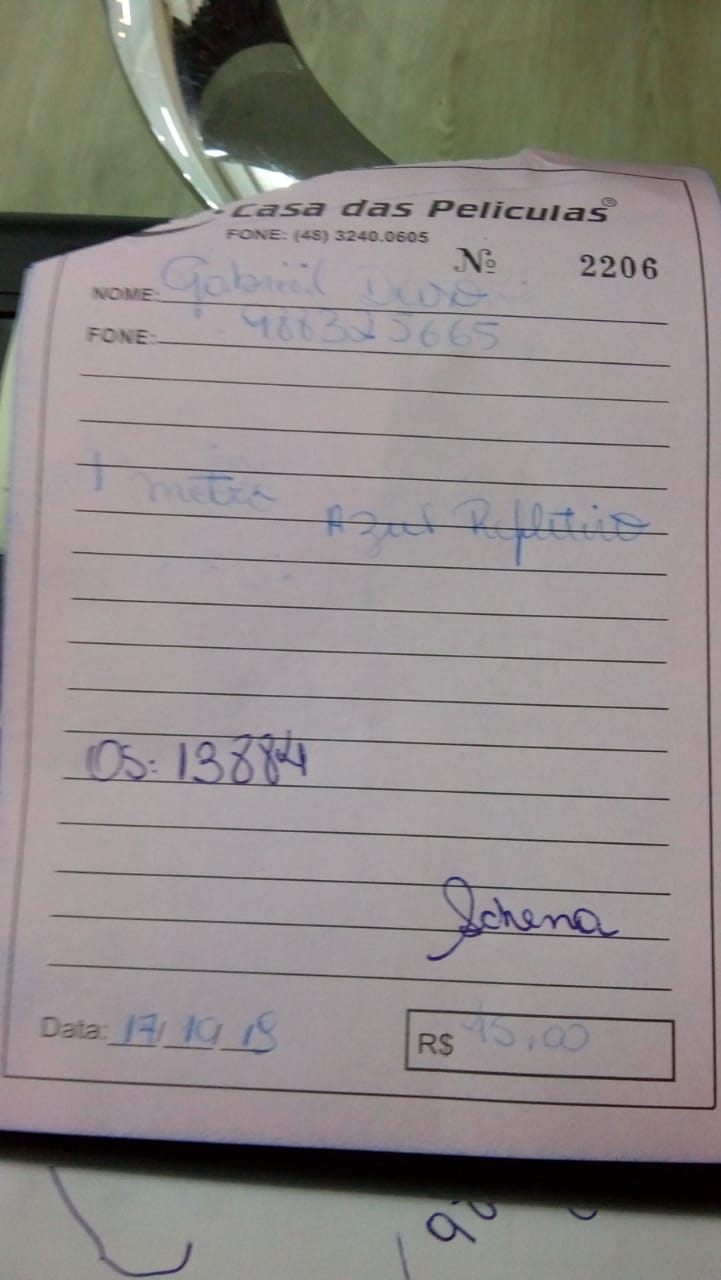 Casa das Peliculas®
FONE: (48) 3240.0605
Nº 2206
NOME: Gabriel
FONE:
1 metro Azul Refletivo
OS: 13884
Schena
Data: 17/10/18
R$ 45,00